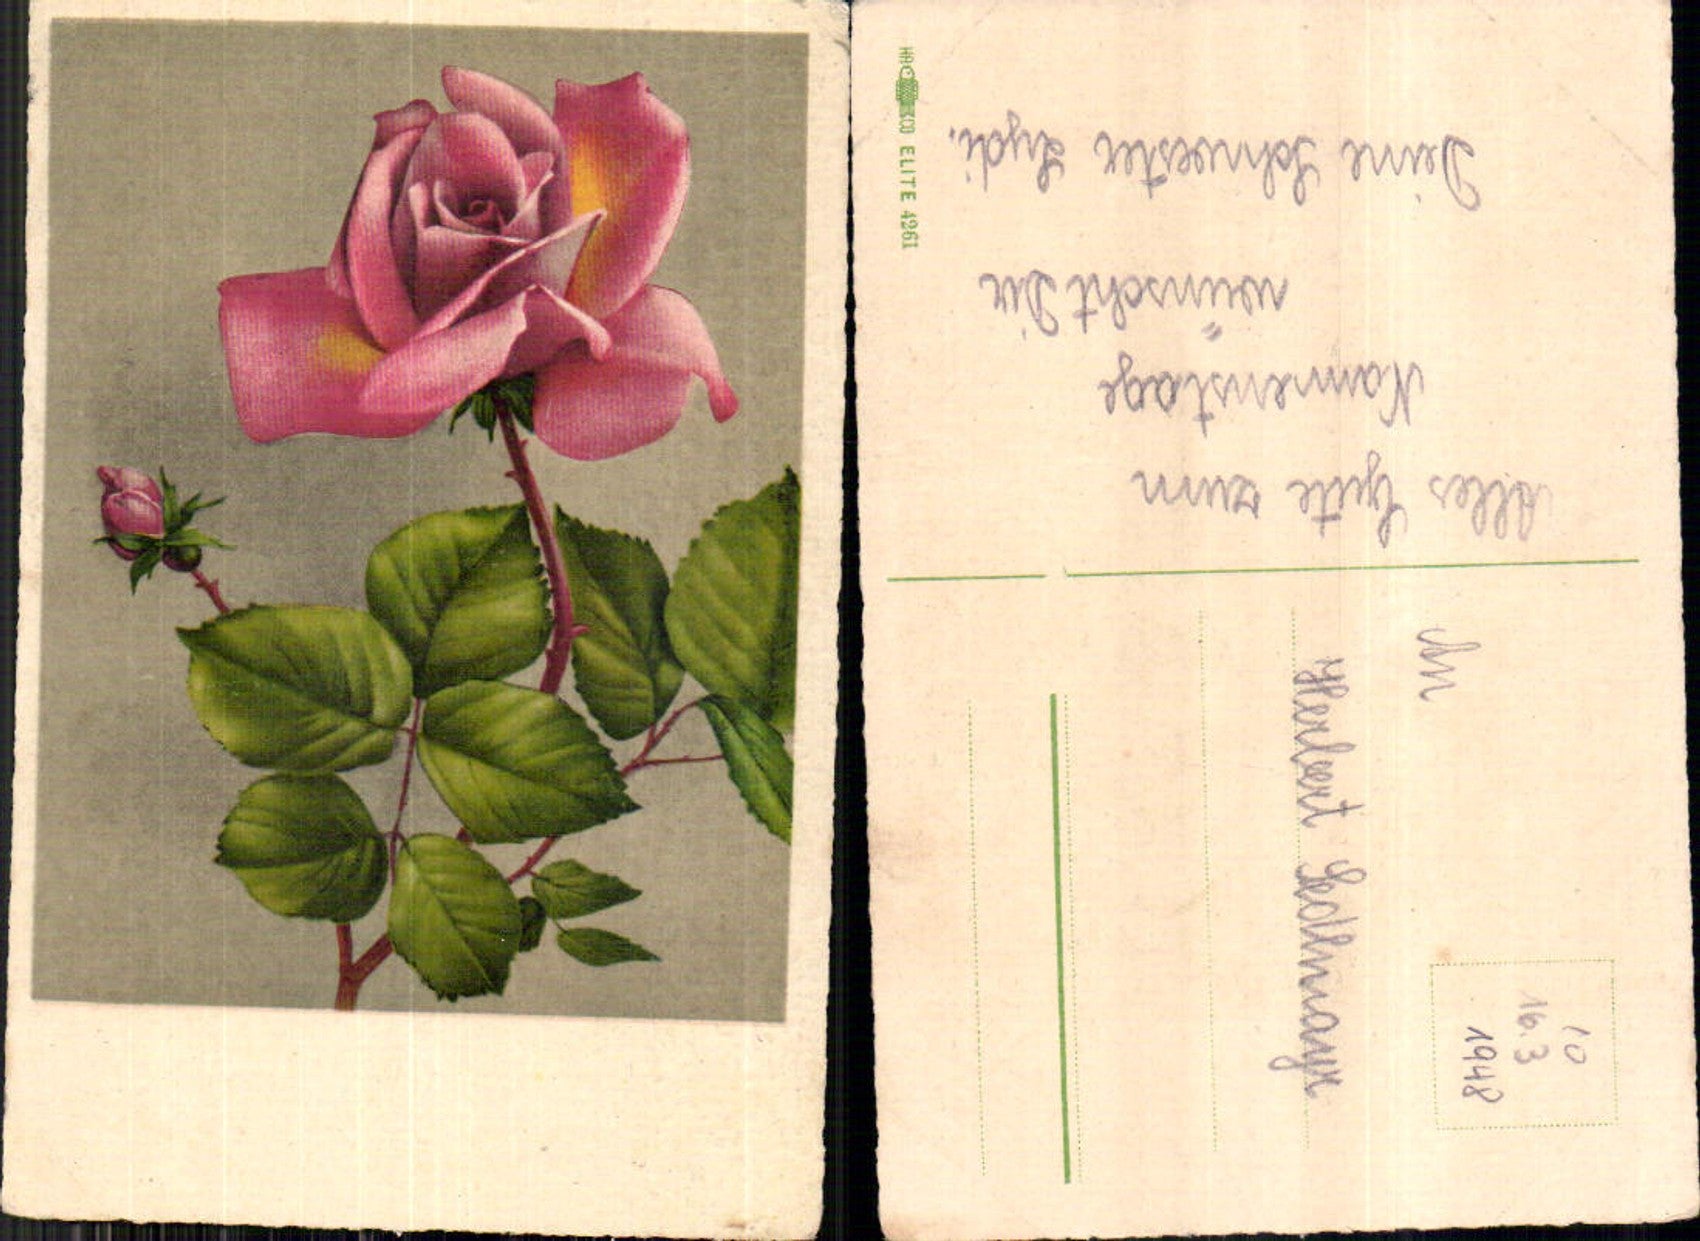 Alles Gute zum
Namenstage
wünscht Dir
Deine Schwester Lydi.
ELITE 4261
An
Herbert Sedlmayr
10
16.3
1948